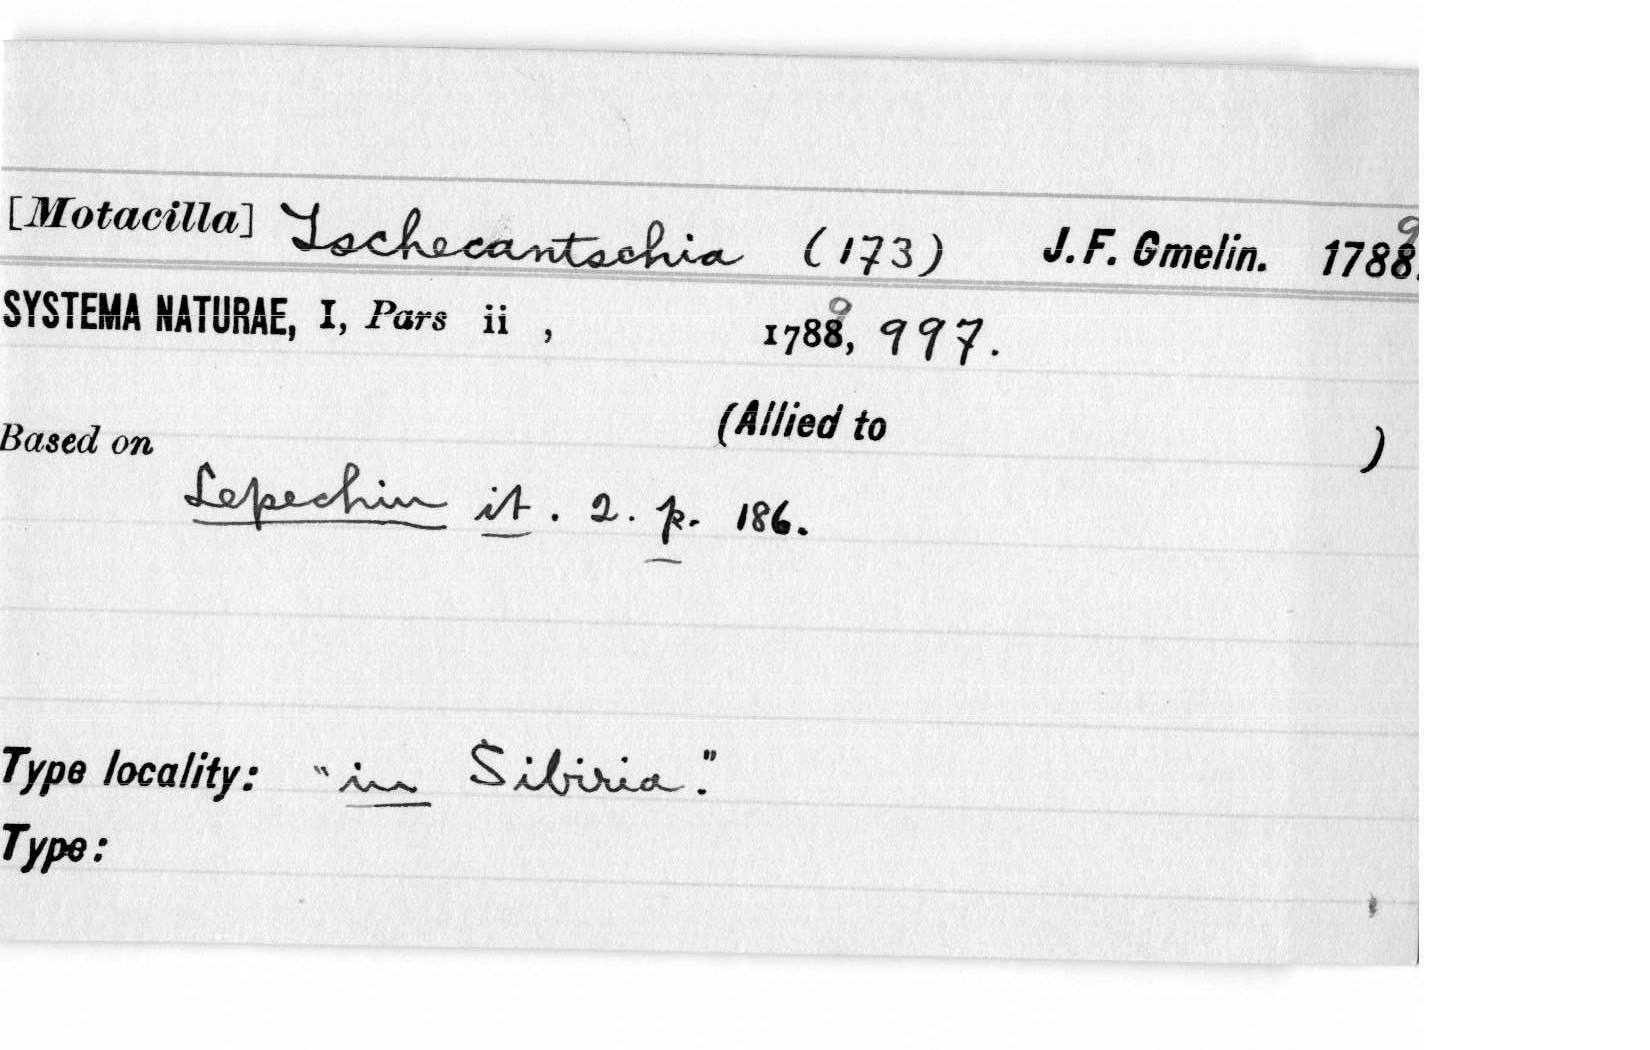 [Motacilla] Tschecantschia (173) J. F. Gmelin. 1788. 9
SYSTEMA NATURAE, I, Pars ii , 1788, 9 997.
(Allied to )
Based on
Lepechin it. 2. p. 186.
Type locality: "in Sibiria."
Type: